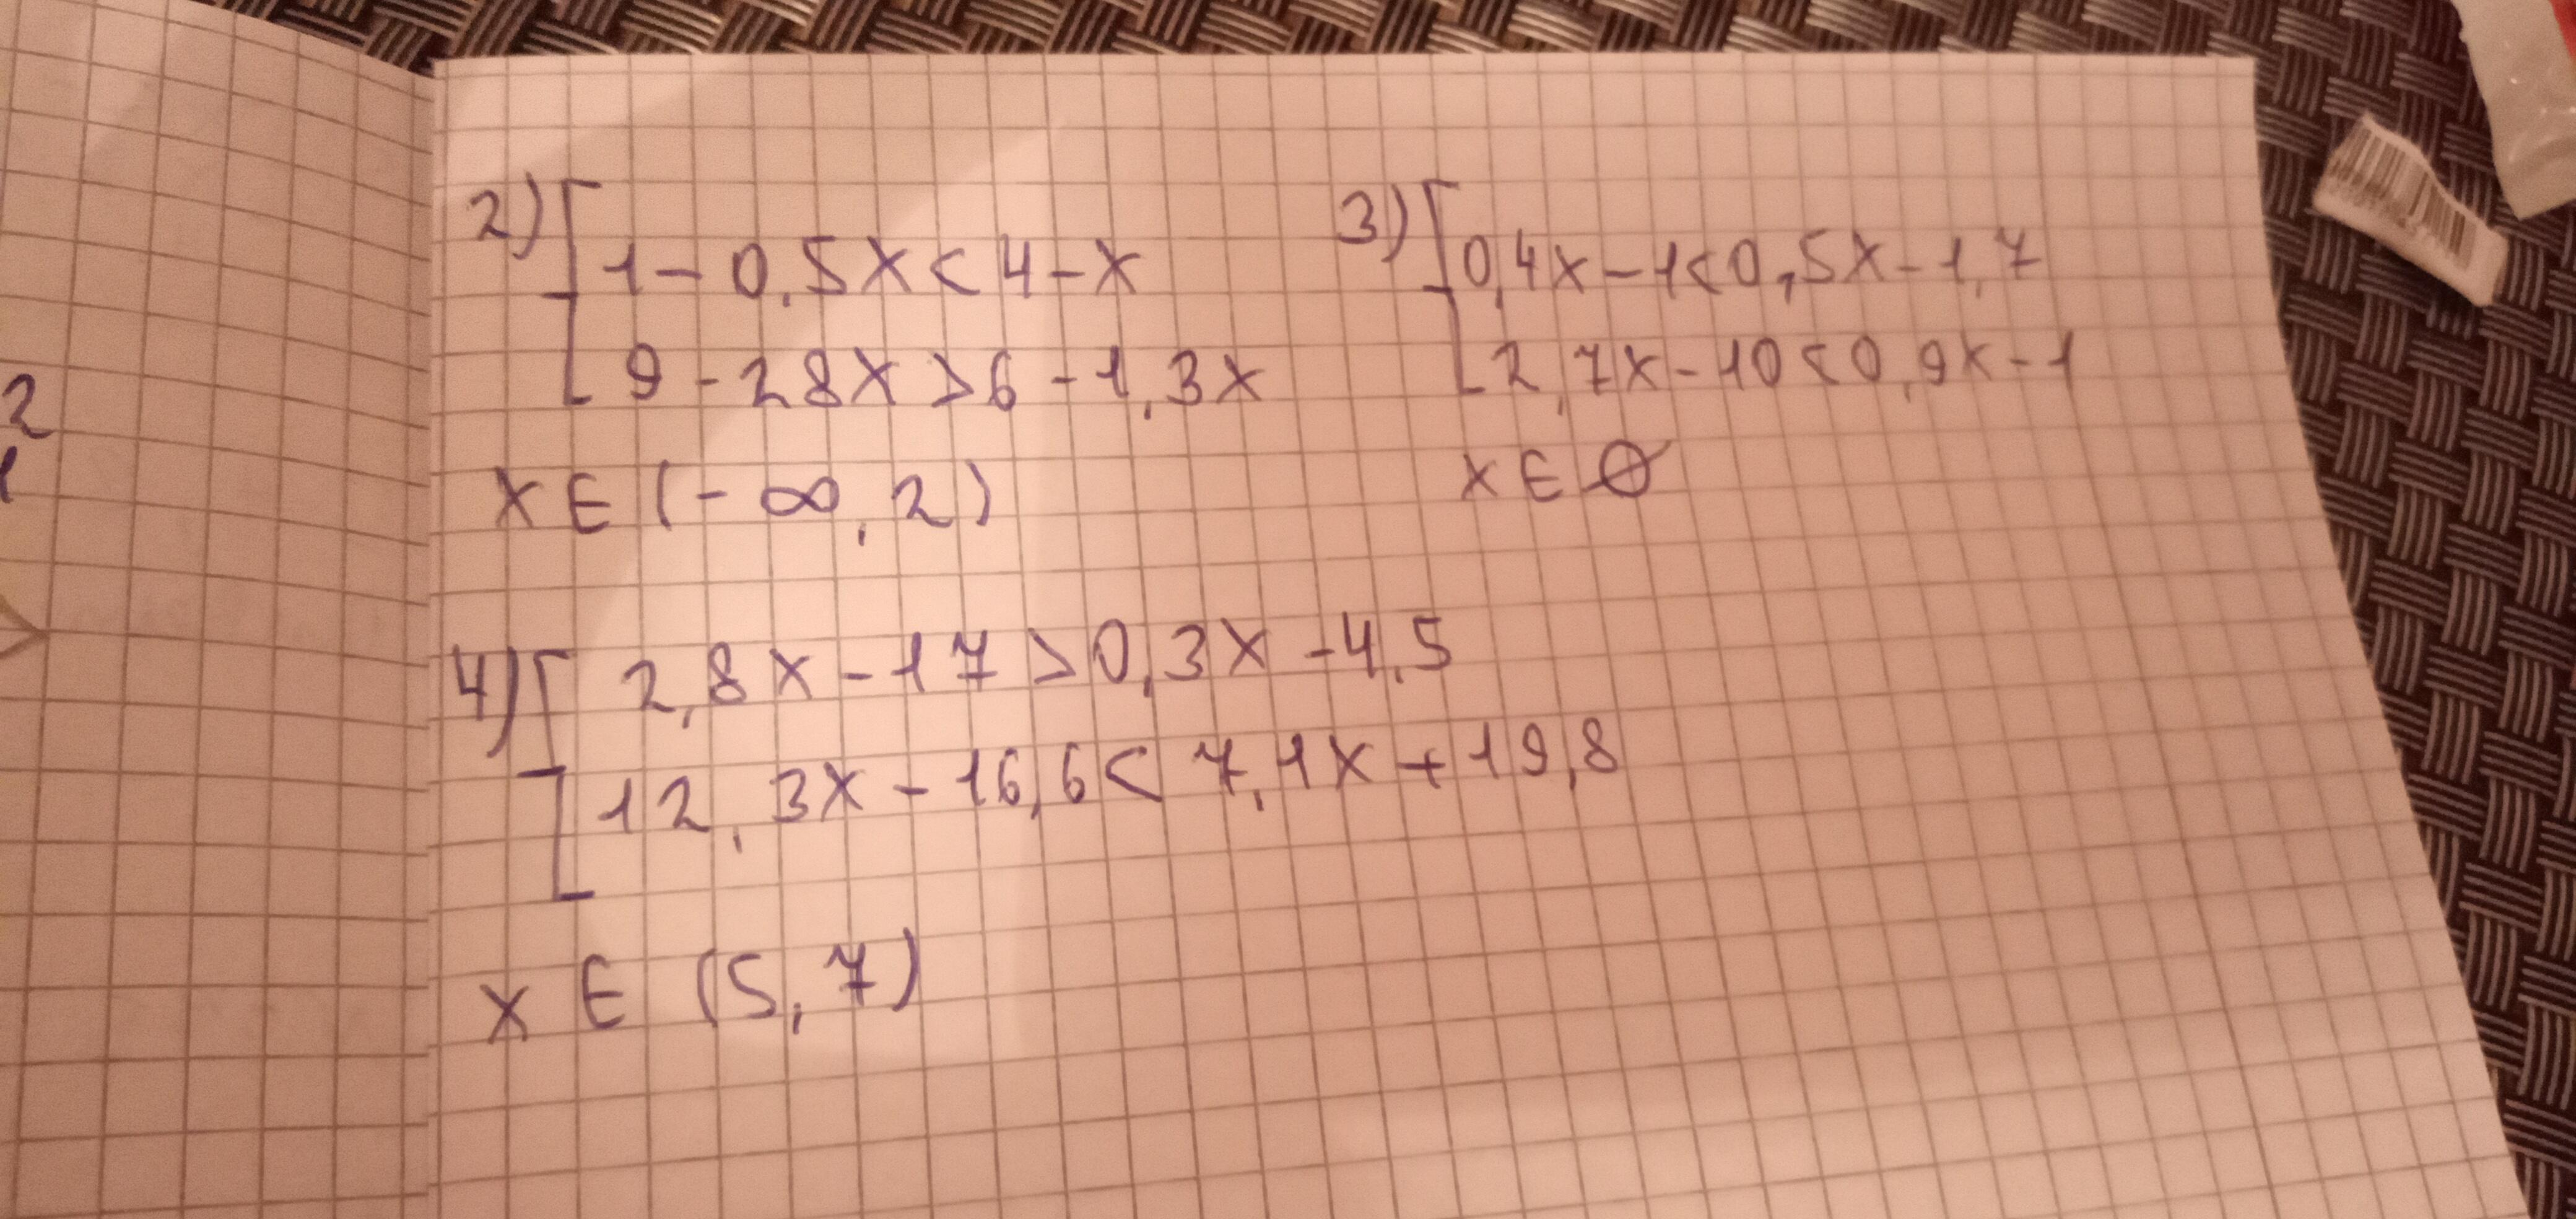 2
1
2) 1 - 0,5x < 4 - x
9 - 28x > 6 - 1,3x
x ∈ (- ∞, 2)
3) 0,4x - 1 < 0,5x - 1,7
2,7x - 10 < 0,9x - 1
x ∈ ∅
4) 2,8x - 17 > 0,3x - 4,5
12,3x - 16,6 < 7,1x + 19,8
x ∈ (5,7)